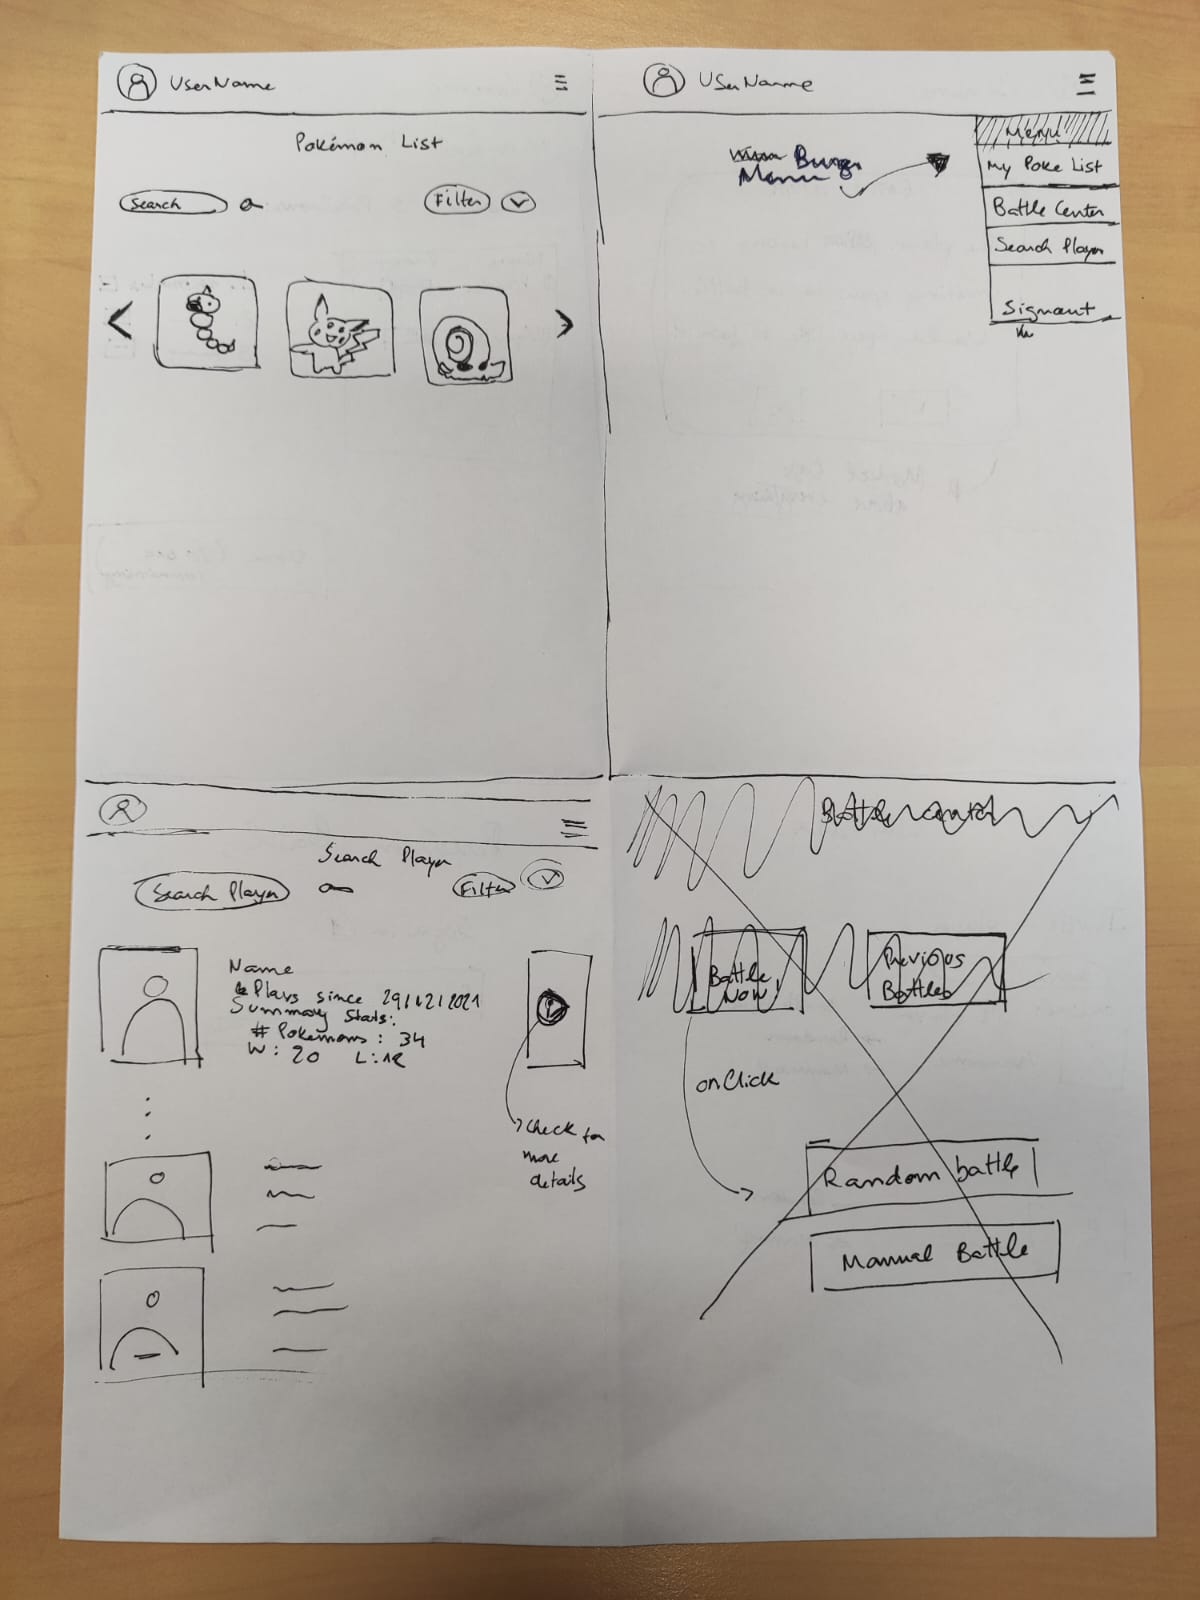 UserName
Pokémon List
Search
Filter
UserName
Burger
Menu
Menu
My Poke List
Battle Center
Search Player
Signout
Search Player
Search Player
Filter
Name
Plays since 29/12/2021
Summary Stats:
# Pokemons : 34
W : 20 L : 12
Check for
more
details
Battle center
Battle
Now
Previous
Battles
onClick
Random battle
Manual Battle